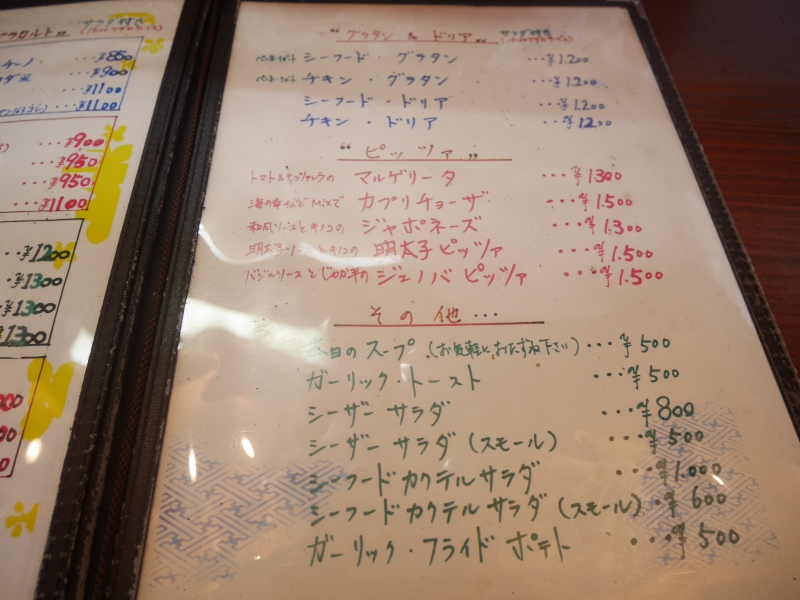 サラダ付き
チーノ ・・・¥850
・・・¥900
・・・¥1100
・・・¥1100
・・・¥900
・・・¥950
・・・¥950
・・・¥1100
・・¥1200
・・・¥1300
・・・¥1300
・・・¥1300
"グラタン & ドリア" サラダ付き
シーフード・グラタン ・・・¥1.200
チキン・グラタン ・・・¥1.200
シーフード・ドリア ・・・¥1.200
チキン・ドリア ・・・¥1200
"ピッツァ"
トマト&モッツァレラの マルゲリータ ・・・¥1300
海の幸などMixで カプリチョーザ ・・・¥1.500
和風ソースとキノコの ジャポネーズ ・・・¥1.300
明太子ソースとキノコの 明太子ピッツァ ・・・¥1.500
バジルソースとじゃが芋の ジェノバピッツァ ・・・¥1.500
その他・・・
本日のスープ（お気軽におたずね下さい）・・・¥500
ガーリック・トースト ・・・¥500
シーザーサラダ ・・・¥800
シーザーサラダ（スモール） ・・・¥500
シーフードカクテルサラダ ・・・¥1.000
シーフードカクテルサラダ（スモール）・¥600
ガーリック・フライドポテト ・・・¥500